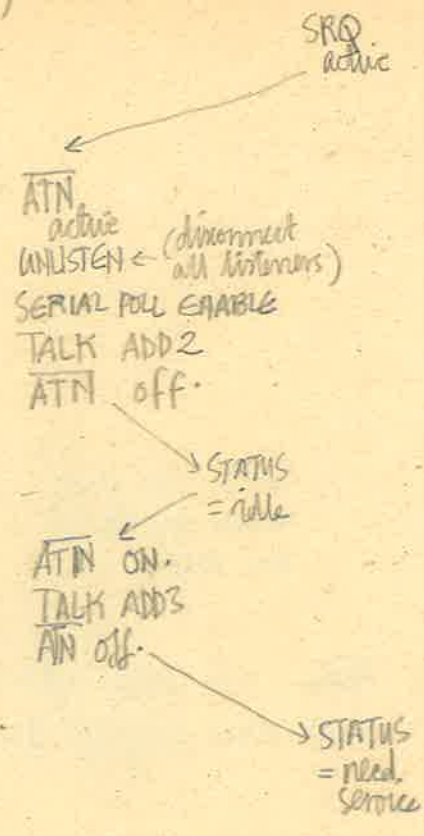 SRQ
active
ATN
active
UNLISTEN ← (disconnect
all listeners)
SERIAL POLL ENABLE
TALK ADD2
ATN off.
STATUS
= idle
ATN ON.
TALK ADD3
ATN off.
STATUS
= need.
service